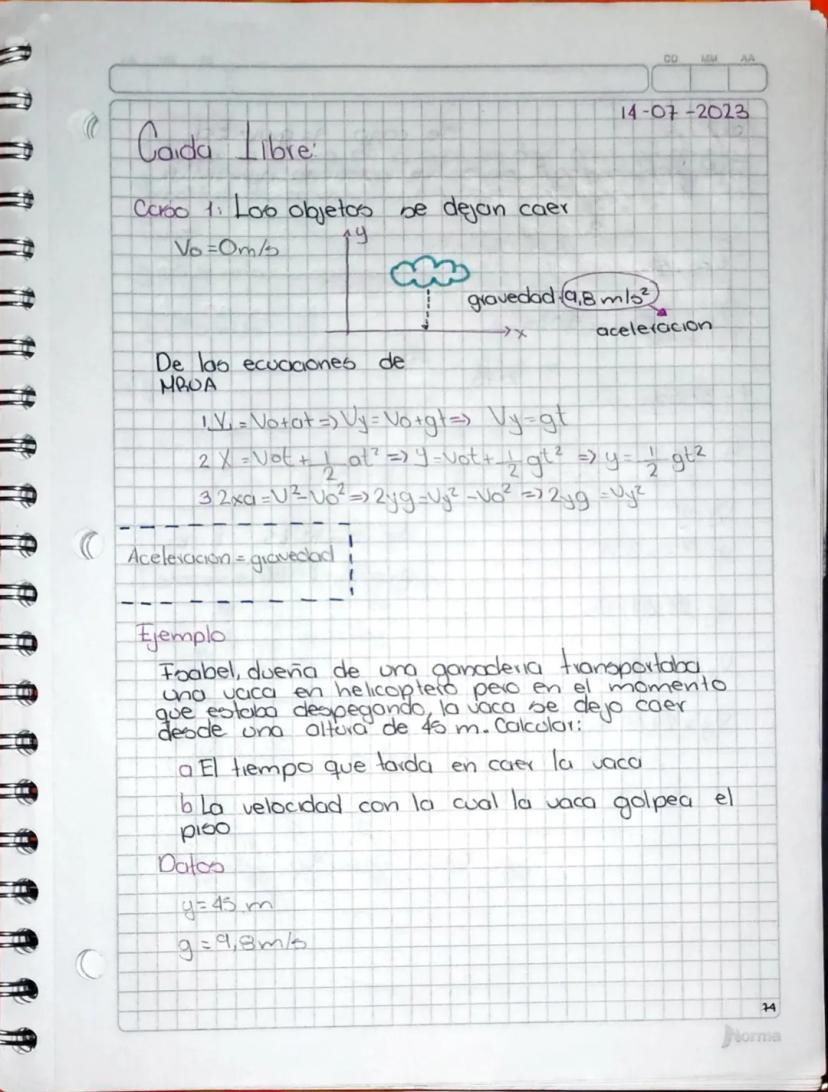 DD MM AA
14-07-2023
Caida Libre:
Caso 1: Los objetos se dejan caer
Vo=0m/s
y
gravedad 9,8 m/s²
x
aceleracion
De las ecuaciones de
MRUA
1 V₁ = Vo+at => Vy = Vo+gt => Vy=gt
2 X = Vot + 1/2 at² => y=Vot + 1/2 gt² => y= 1/2 gt²
3 2xa=V²-Vo² => 2yg=Vy²-Vo² => 2yg=Vy²
Aceleracion = gravedad
Ejemplo
Isabel, dueña de una ganaderia transportaba
una vaca en helicoptero pero en el momento
que estaba despegando, la vaca se dejo caer
desde una altura de 45 m. Calcular:
a El tiempo que tarda en caer la vaca
b La velocidad con la cual la vaca golpea el
piso
Datos
y=45 m
g=9,8m/s
74
Norma